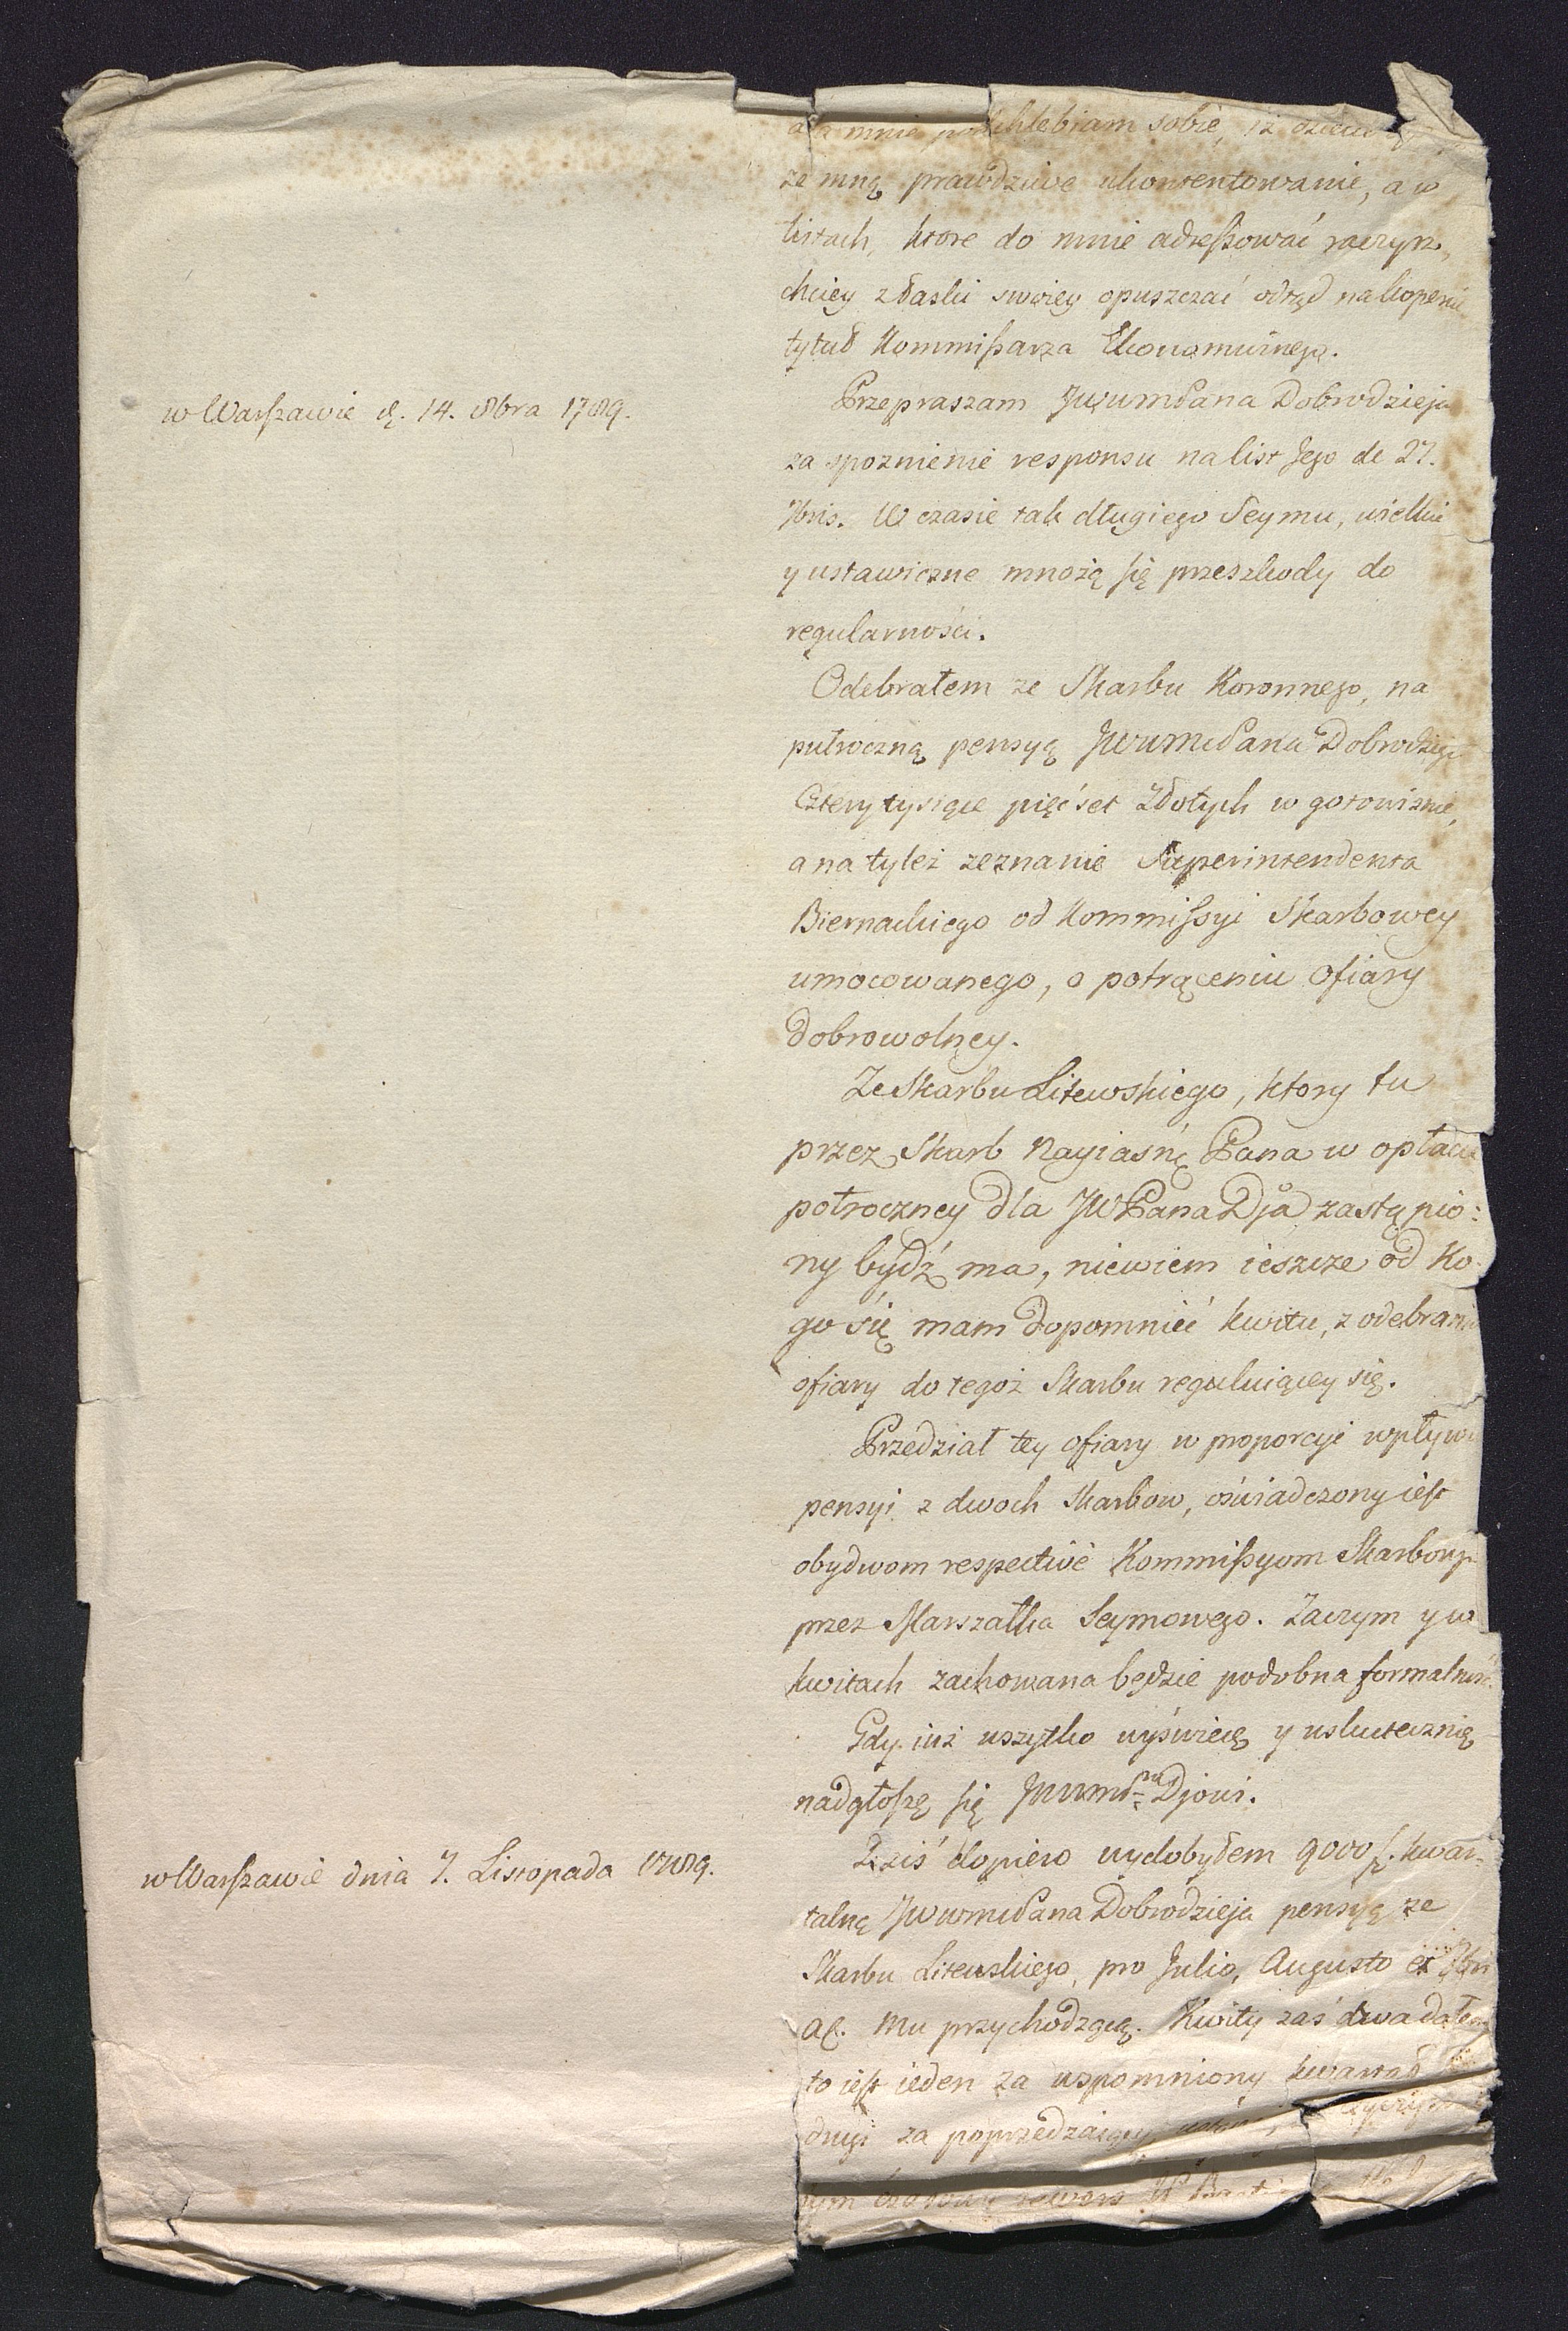 mnie podchlebiam sobie, iż
ze mną prawdziwe ukontentowanie, a w
listach, ktore do mnie adreßować raczysz,
chciey z łaski swoiey opuszczać odtąd na kopercie
tytuł Kommißarza Ekonomicznego.
w Warszawie d. 14. 8bra 1789.
Przepraszam JWWMPana Dobrodzieja
za spoznienie responsu na list Jego de 27.
7bris. W czasie tak długiego Seymu, wielkie
y ustawiczne mnożą się przeszkody do
regularności.
Odebrałem ze Skarbu Koronnego, na
pułroczną pensyą JWWMPana Dobrodzieja
Cztery tysiące pięćset Złotych w gotowiznie,
a na tyleż zeznanie Superintendenta
Biernackiego od Kommißyi Skarbowey
umocowanego, o potrąceniu ofiary
dobrowolney.
Ze Skarbu Litewskiego, ktory tu
przez Skarb Nayiasńe Pana w opłacie
połroczney dla JWPana Dja zastąpio:
ny bydź ma, niewiem ieszcze od Ko
go się mam dopomnieć kwitu, z odebrania
ofiary do tegoż Skarbu reguluiącey się.
Przedział tey ofiary w proporcyi wpływu
pensyi z dwoch Skarbow, oświadczony iest
obydwom respectivè Kommißyom Skarbowym
przez Marszałka Seymowego. Zaczym y w
kwitach zachowana będzie podobna formalność.
Gdy iuż wszytko wyświecę y uskutecznię
nadgłoszę się JWWMPnu Djowi.
w Warszawie dnia 7. Listopada 1789.
Dziś dopiero wydobyłem 9000 f. kwar=
talną JWWMPana Dobrodzieja pensyą ze
Skarbu Litewskiego, pro Julio, Augusto et 7bri
a.c. mu przychodzącą. Kwity zaś dwa dałem
to iest ieden za wspomniony kwartał
drugi za poprzedzaiący
tym rewers